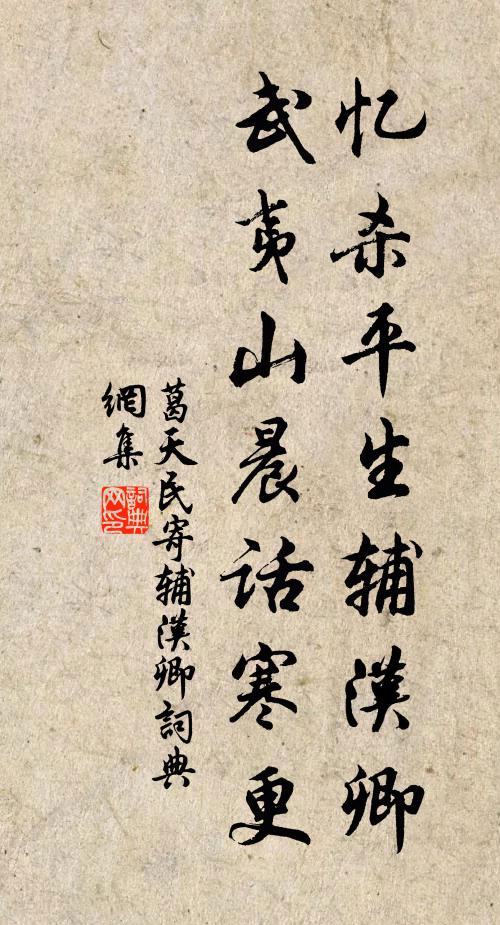 忆杀平生辅漢卿
武夷山晨话寒更
葛天民寄辅漢卿詞典
網集
詞典网印